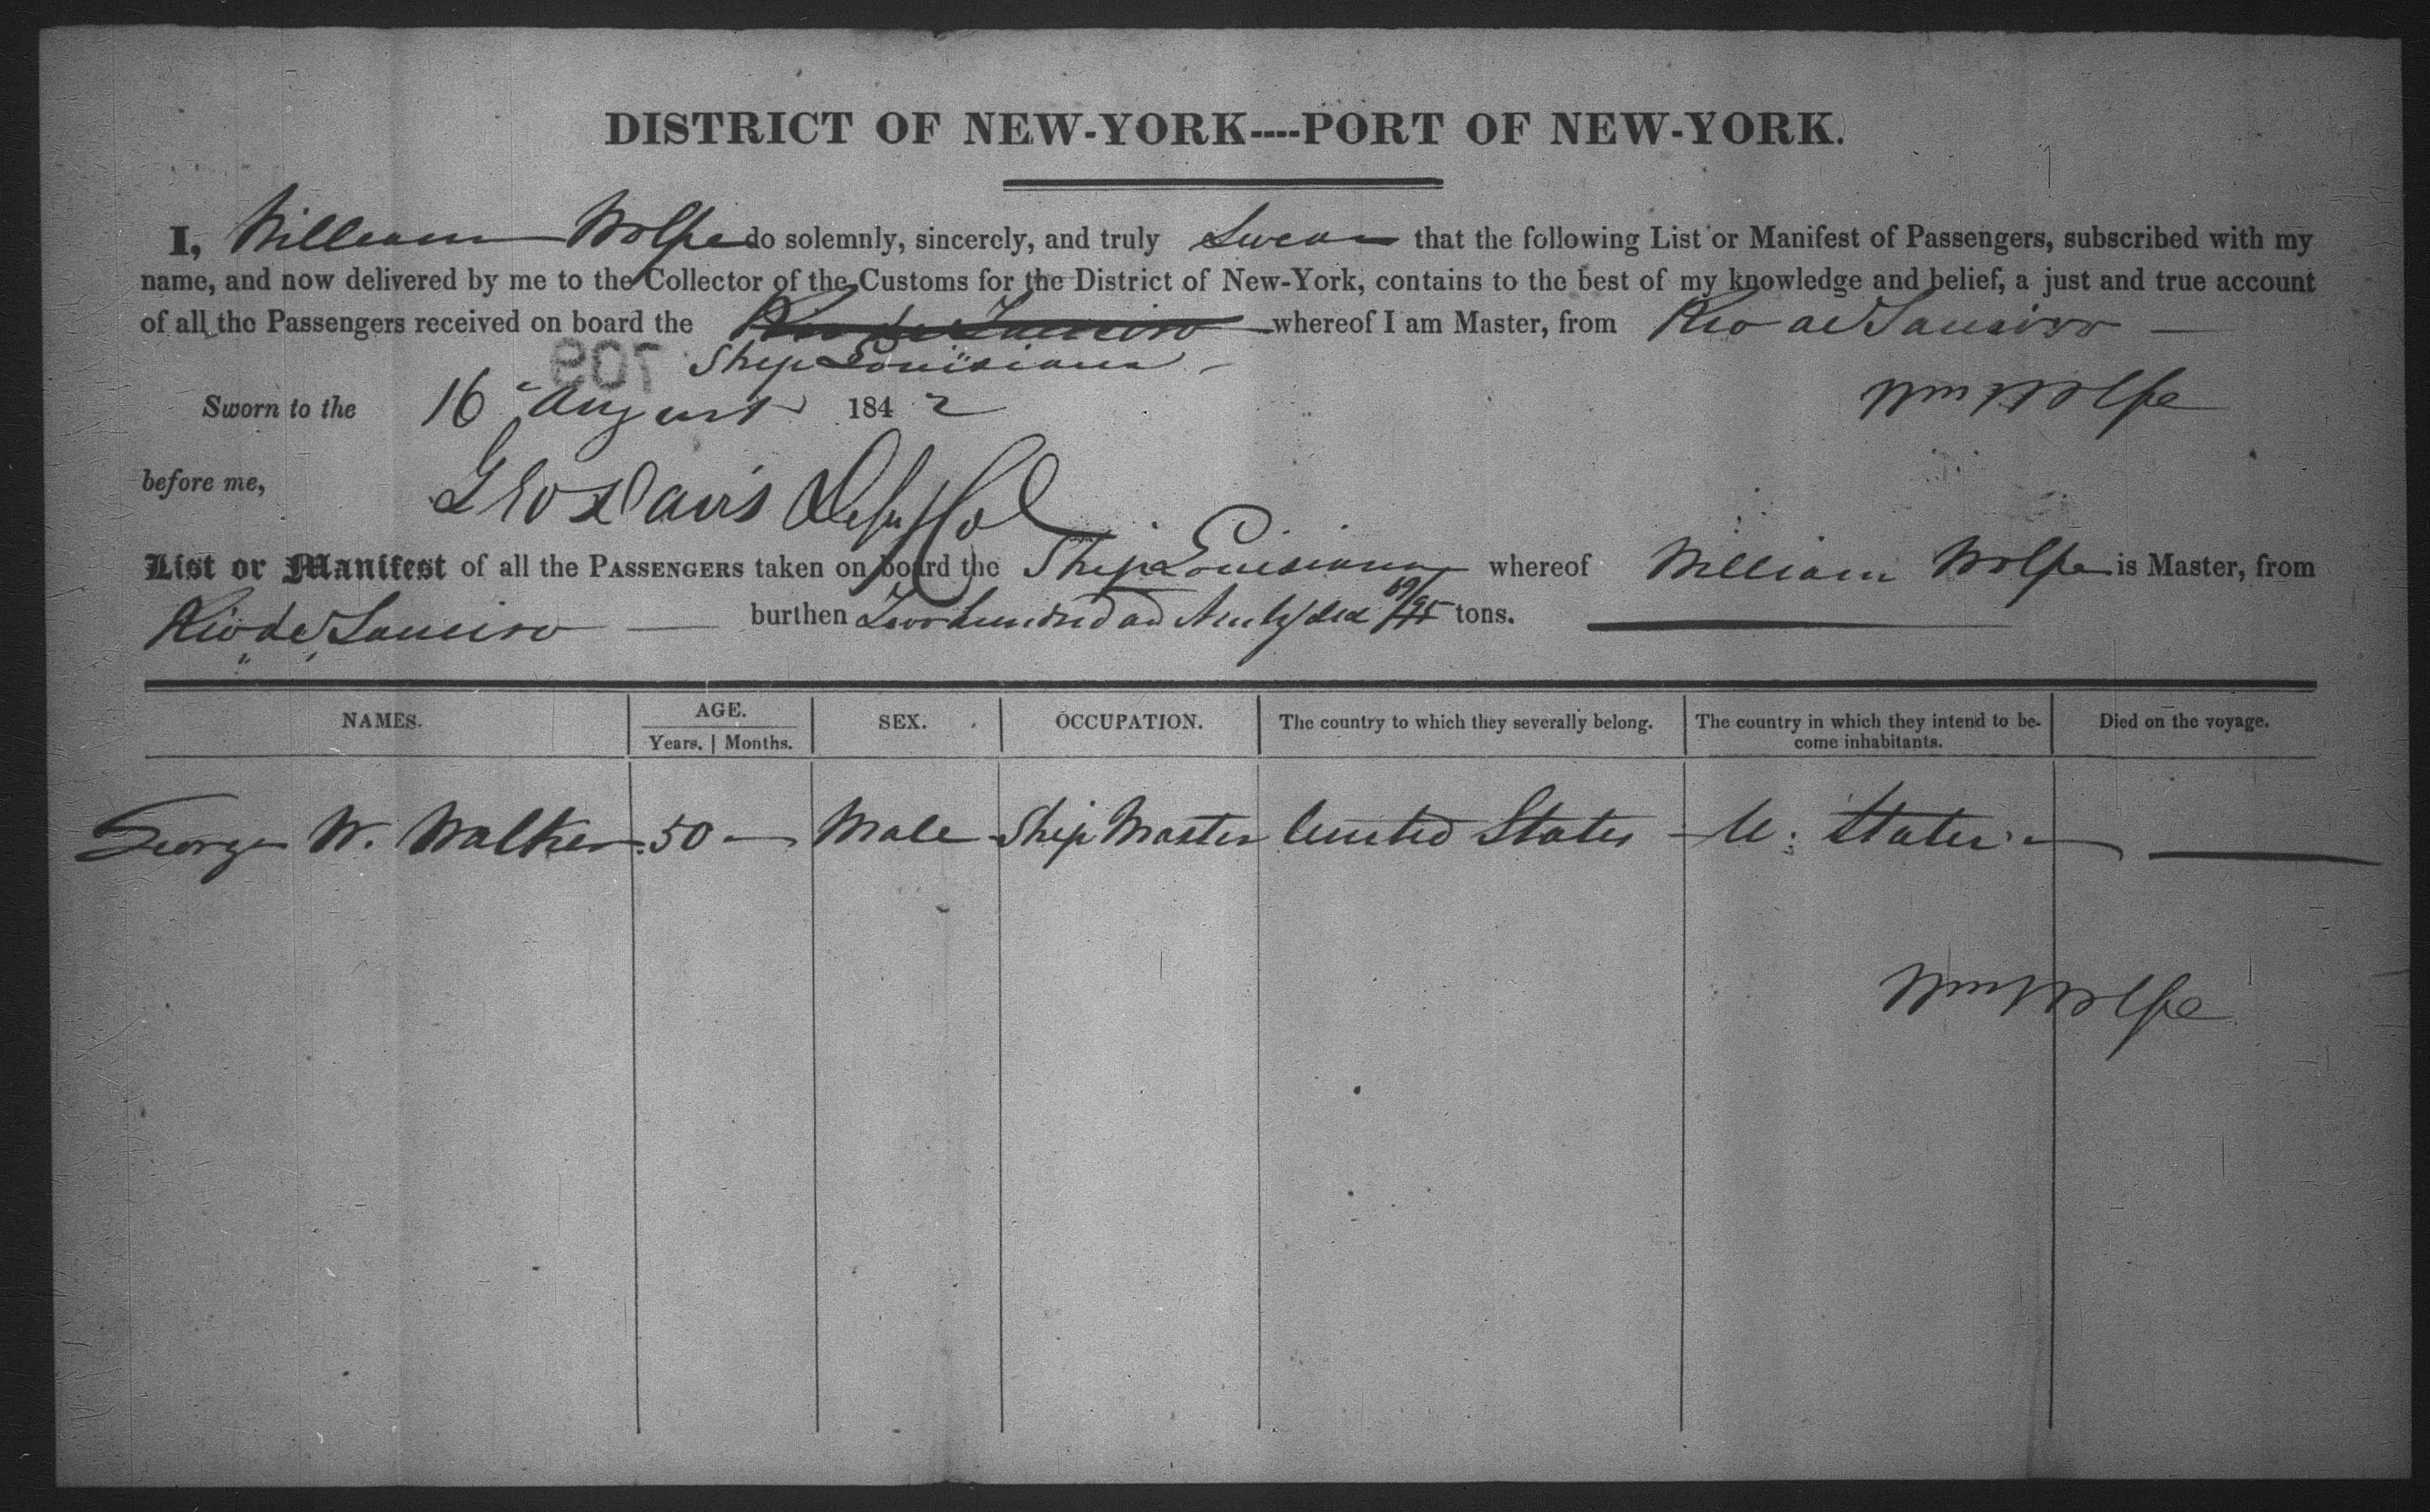 DISTRICT OF NEW-YORK----PORT OF NEW-YORK.
I, William Wolfe do solemnly, sincerely, and truly Swear that the following List or Manifest of Passengers, subscribed with my
name, and now delivered by me to the Collector of the Customs for the District of New-York, contains to the best of my knowledge and belief, a just and true account
of all the Passengers received on board the Rio de Janeiro whereof I am Master, from Rio de Janeiro —
Ship Louisiana
709
Sworn to the 16 August 1842
Wm Wolfe
before me, Geo Davis Dep Col
List or Manifest of all the PASSENGERS taken on board the Ship Louisiana whereof William Wolfe is Master, from
Rio de Janeiro — burthen Two hundred and Ninety six /95 tons.
NAMES. AGE. SEX. OCCUPATION. The country to which they severally belong. The country in which they intend to be- Died on the voyage.
Years. | Months. come inhabitants.
George W. Walker 50 — Male Ship Master United States U. States — —
Wm Wolfe